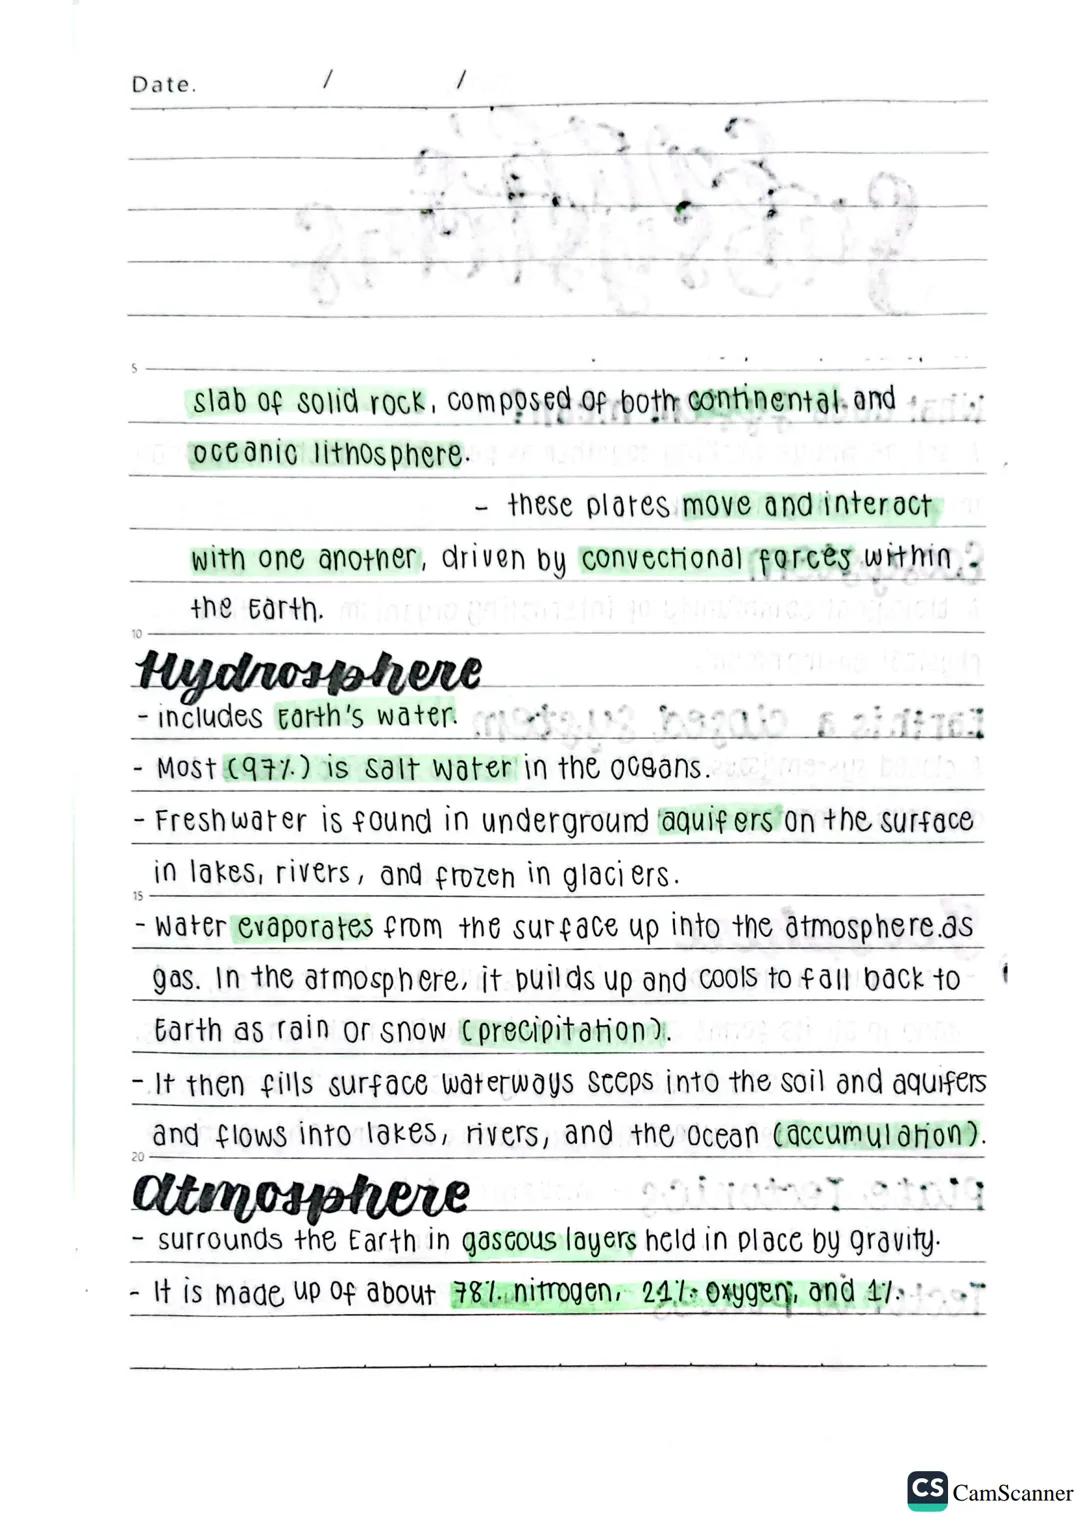 Date. / /
5
slab of solid rock, composed of both continental and
oceanic lithosphere.
- these plates move and interact
with one another, driven by convectional forces within
the Earth.
10
Hydrosphere
- includes Earth's water.
- Most (97%) is salt water in the oceans.
- Freshwater is found in underground aquifers on the surface
in lakes, rivers, and frozen in glaciers.
15
- Water evaporates from the surface up into the atmosphere.as
gas. In the atmosphere, it builds up and cools to fall back to
Earth as rain or snow (precipitation).
- It then fills surface waterways seeps into the soil and aquifers
and flows into lakes, rivers, and the ocean (accumulation).
20
Atmosphere
- surrounds the Earth in gaseous layers held in place by gravity.
- It is made up of about 78% nitrogen, 21% oxygen, and 1%
CS CamScanner